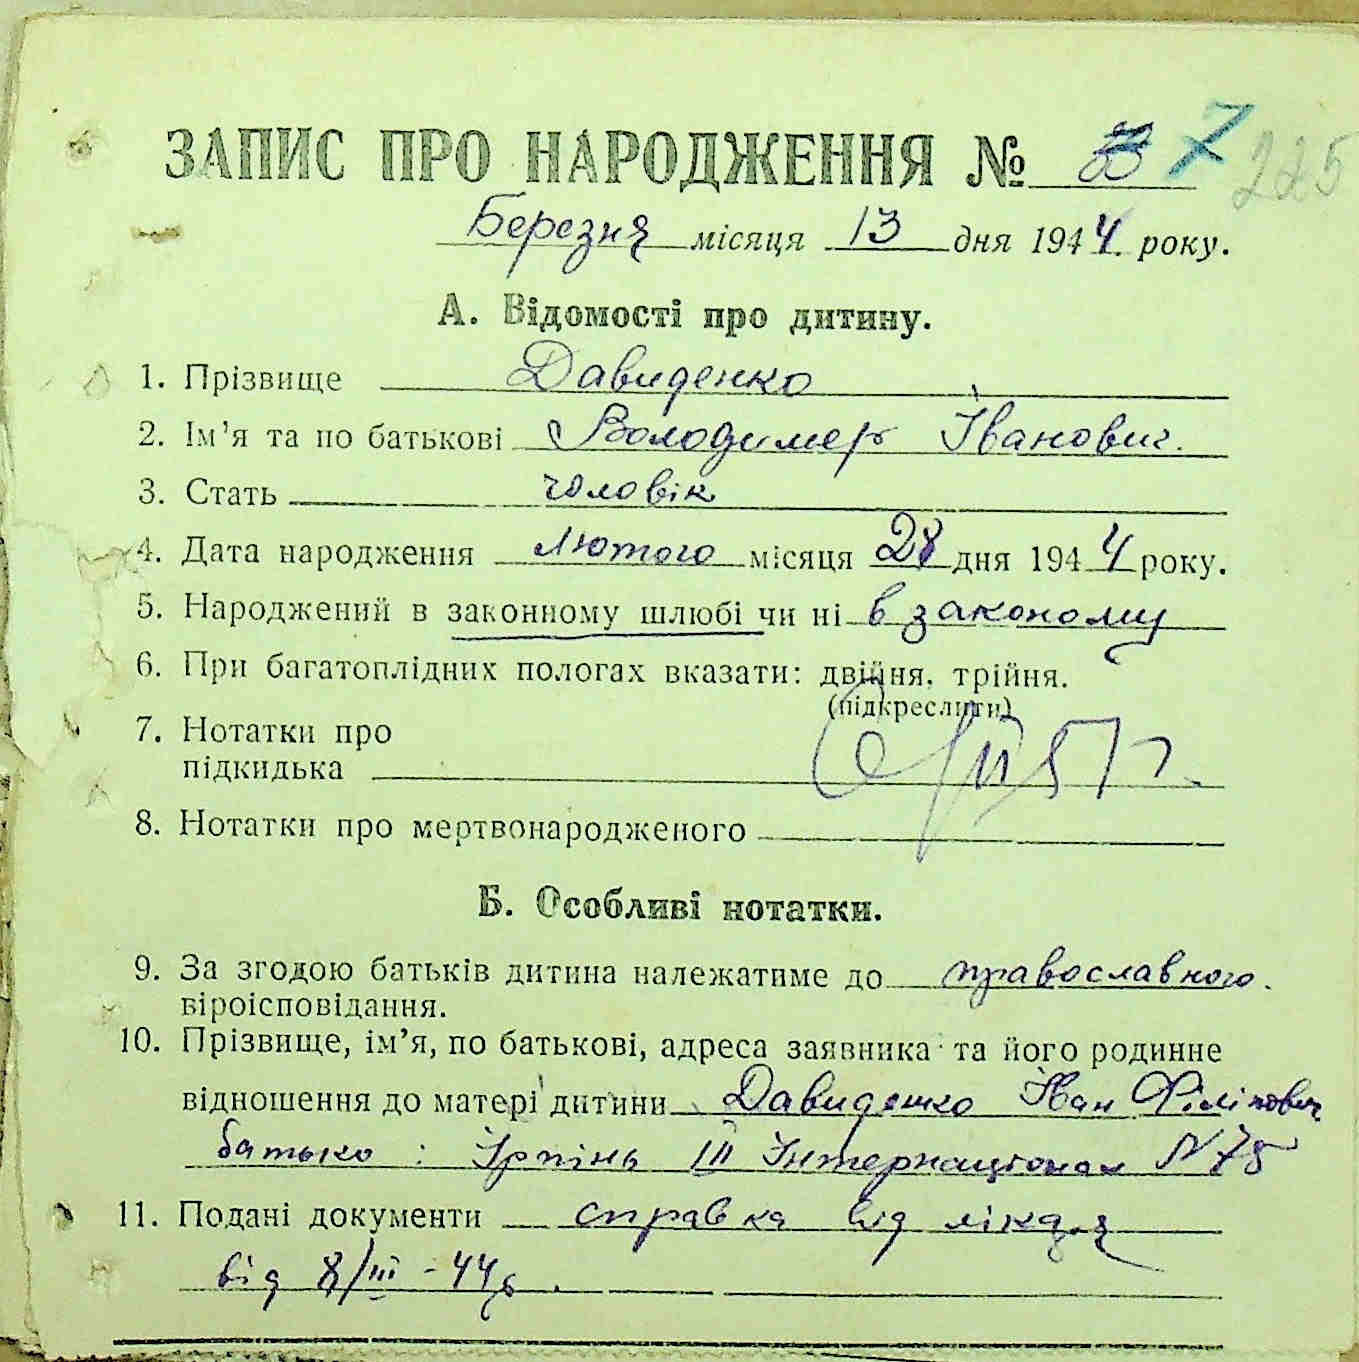 ЗАПИС ПРО НАРОДЖЕННЯ № 7 225
Березня місяця 13 дня 1944 року.
А. Відомості про дитину.
1. Прізвище Давиденко
2. Ім’я та по батькові Володимер Іванович.
3. Стать чоловік
4. Дата народження лютого місяця 28 дня 1944 року.
5. Народжений в законному шлюбі чи ні в законому
6. При багатоплідних пологах вказати: двійня, трійня.
(підкреслити)
7. Нотатки про
підкидька
8. Нотатки про мертвонародженого
Б. Особливі нотатки.
9. За згодою батьків дитина належатиме до православного.
віроісповідання.
10. Прізвище, ім’я, по батькові, адреса заявника та його родинне
відношення до матері дитини Давиденко Іван Філіпович
батько : Ірпінь III Інтернаціонал N 75
11. Подані документи справка від лікаря
від 8/III - 44 р.